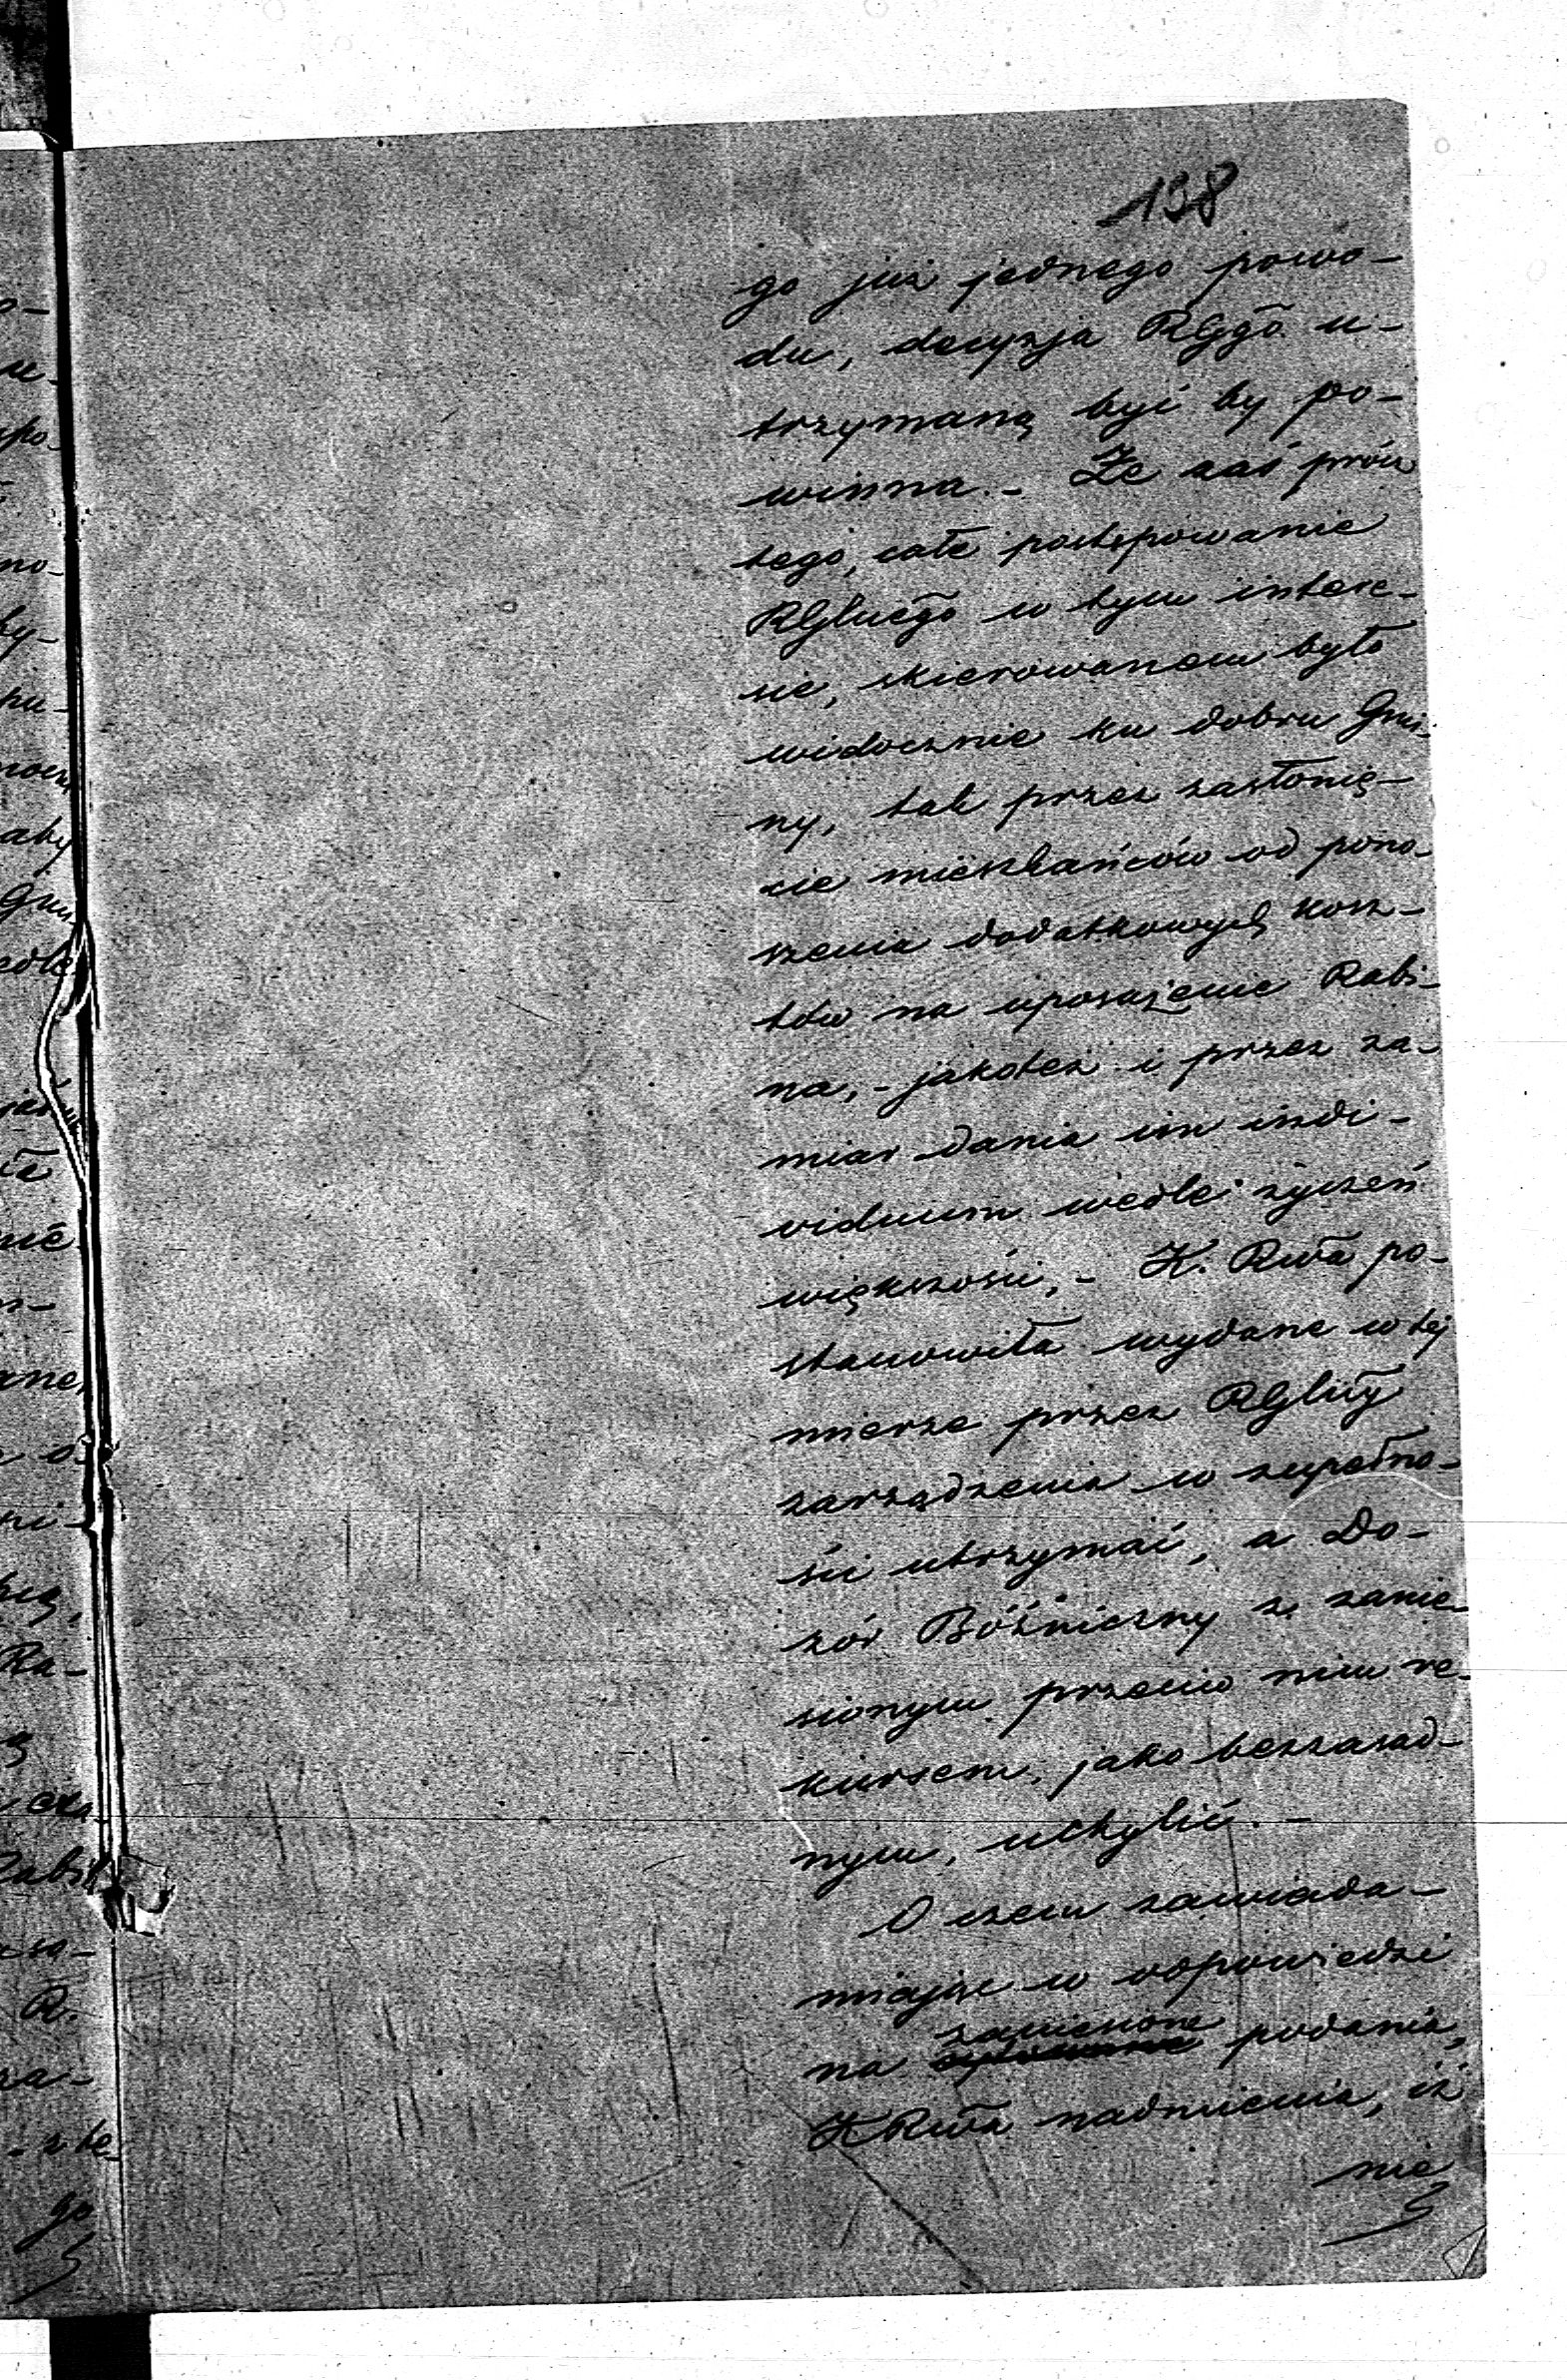 138
go już jednego powo-
du, decyzja RGgo u-
trzymaną być by po-
winna. - Że zaś prócz
tego, całe postępowanie
RGlnego w tym intere-
sie, skierowanem było
widocznie ku dobru Gmi-
ny, tak przez zasłonię-
cie mieszkańców od pono-
szenia dodatkowych kosz-
tów na uposażenie Rabi-
na, - jakoteż i przez za-
miar dania im indi-
viduum wedle życzeń
większości, - K. Rwa po-
stanowiła wydane w tej
mierze przez RGlny
zarządzenia w zupełno-
ści utrzymać, a Do-
zór Bóżniczny z zanie-
sionym przeciw nim re-
kursem, jako bezzasad-
nym, uchylić. -
O czem zawiada-
miając w odpowiedzi
zaniesione
na podania,
K Rwa nadmienia, iż
nie